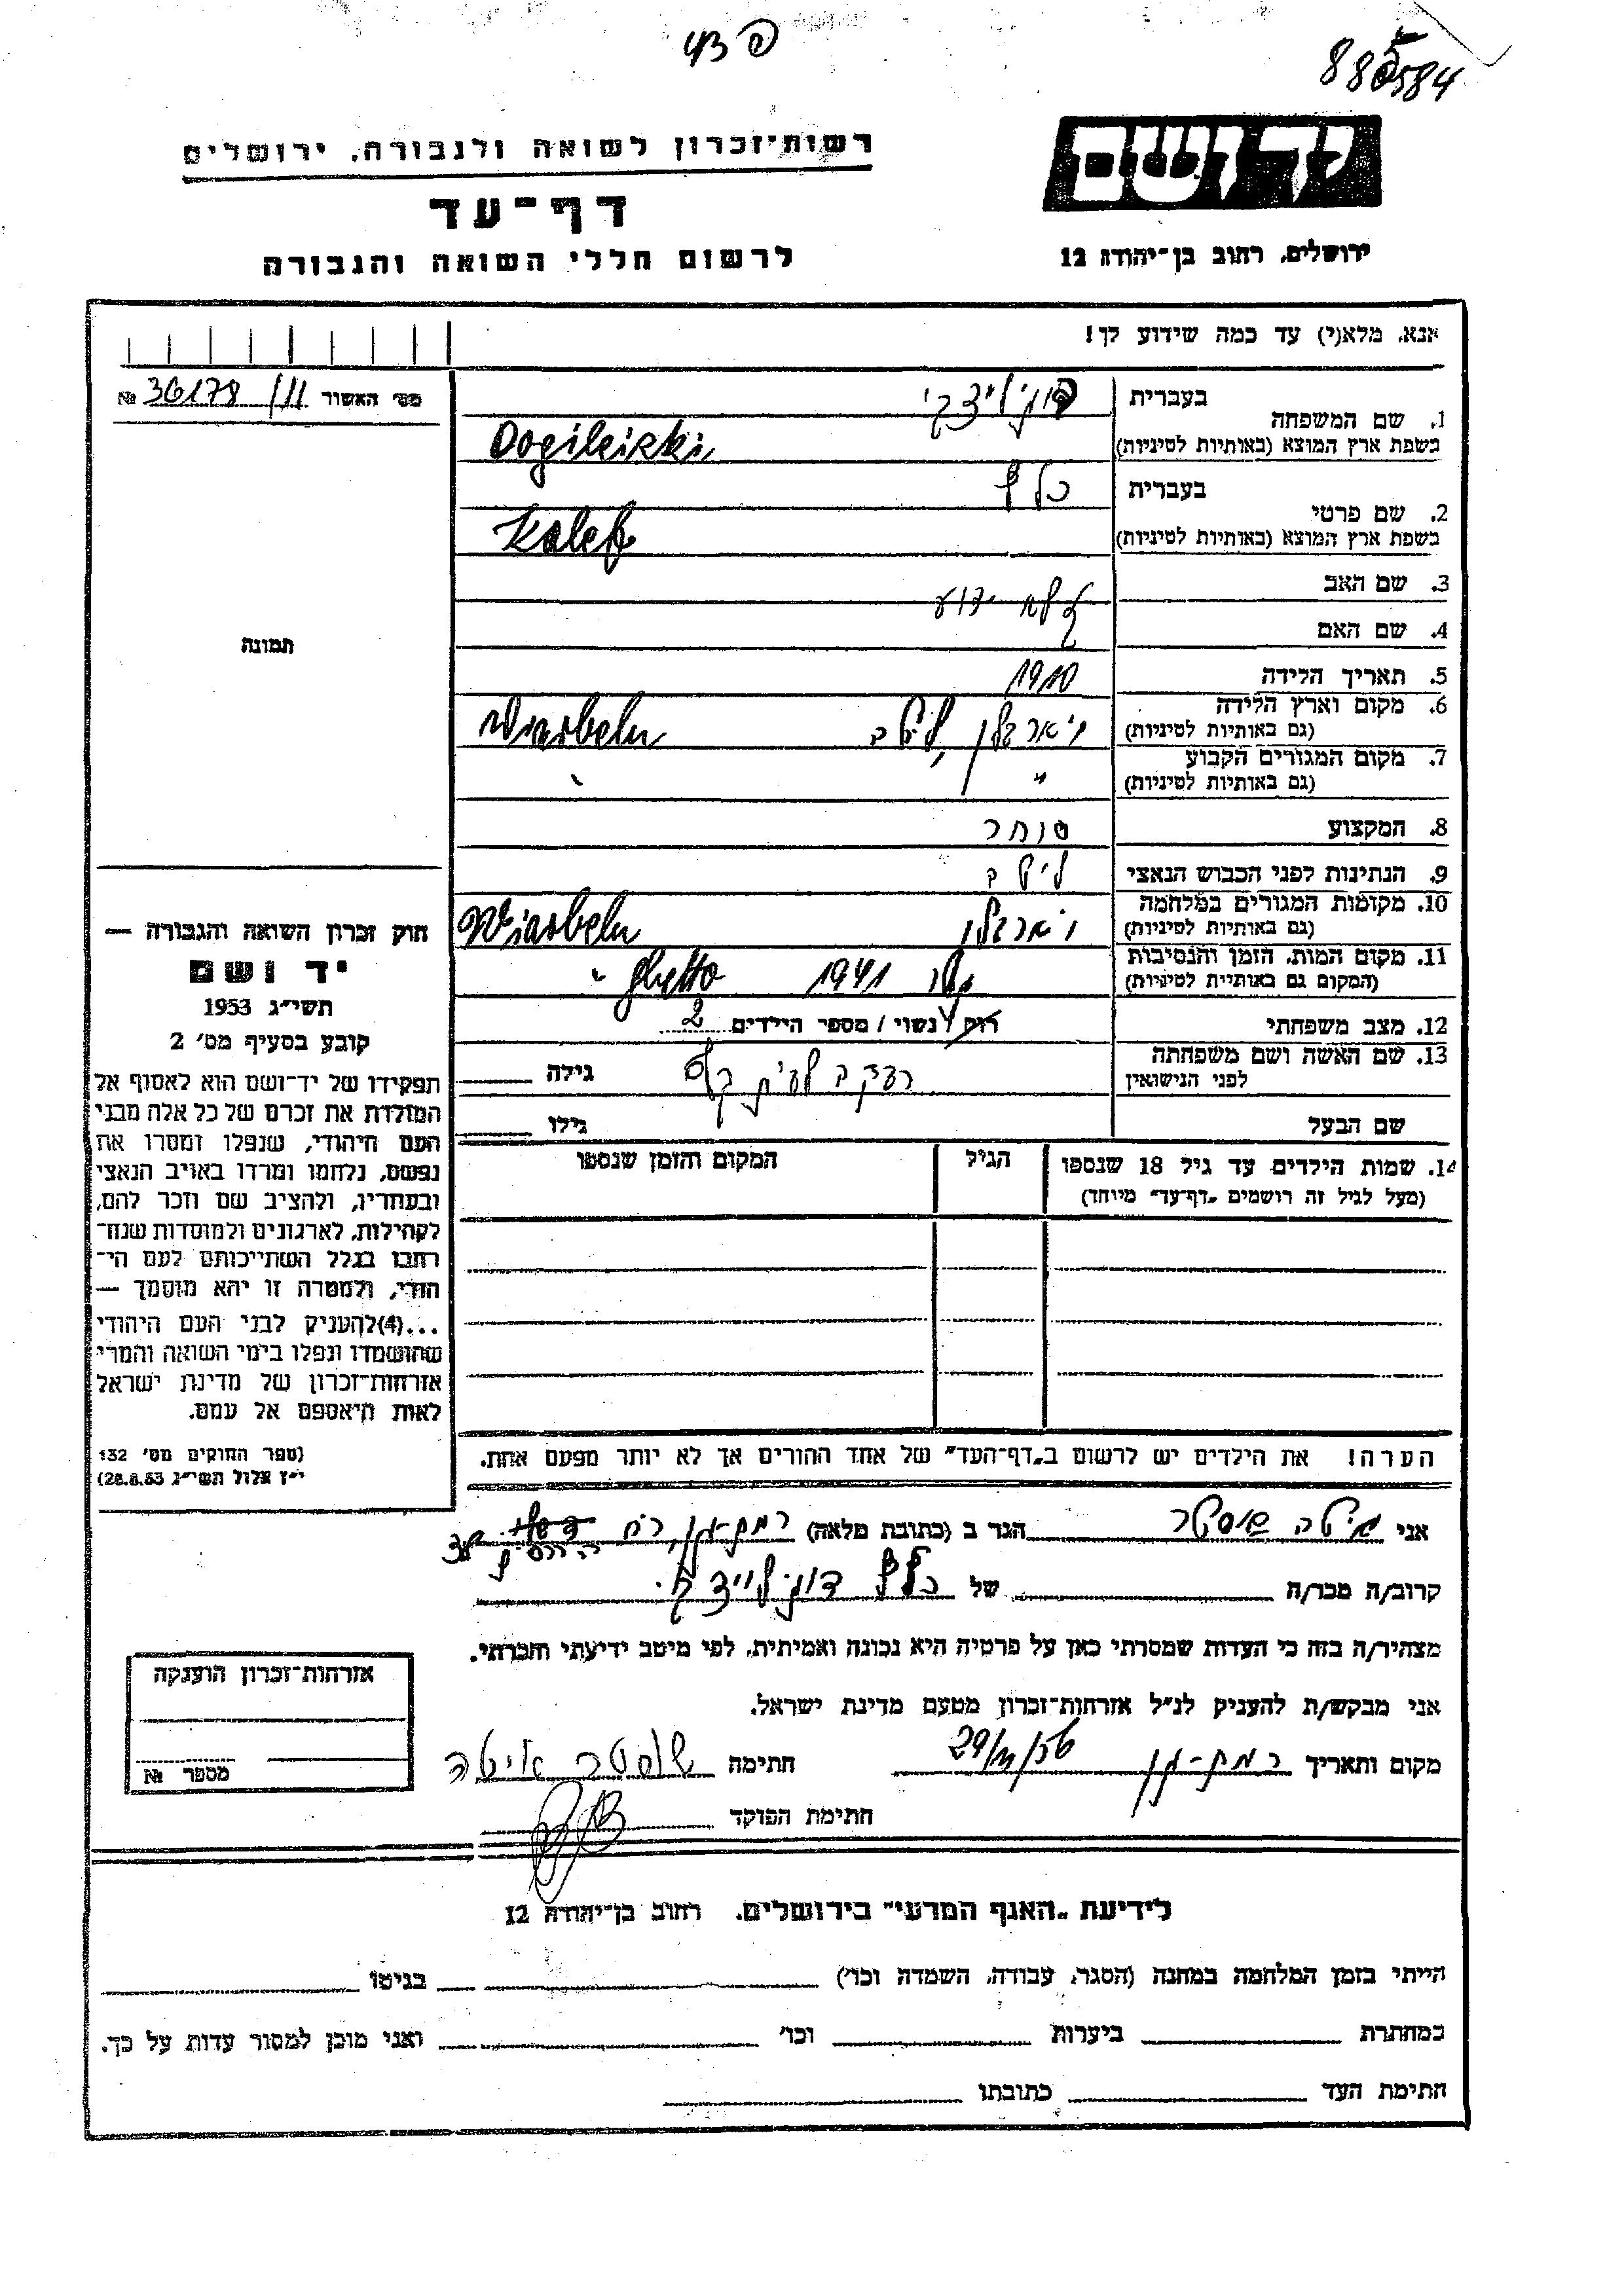 רשות־זכרון לשואה ולגבורה, ירושלים
דף־עד
לרשום חללי השואה והגבורה
יד ושם
ירושלים, רחוב בן־יהודה 12
אנא, מלא(י) עד כמה שידוע לך!
מס׳ האשור 36178/111 №
1. שם המשפחה בעברית
בשפת ארץ המוצא (באותיות לטיניות) Dogileizki
2. שם פרטי בעברית כלב
בשפת ארץ המוצא (באותיות לטיניות) Kaleb
3. שם האב לא ידוע
4. שם האם
5. תאריך הלידה 1910
6. מקום וארץ הלידה (גם באותיות לטיניות) ויארבלן, ליטא Wiarbeln
7. מקום המגורים הקבוע (גם באותיות לטיניות) " "
8. המקצוע סוחר
9. הנתינות לפני הכבוש הנאצי ליטא
10. מקומות המגורים במלחמה (גם באותיות לטיניות) ויארבלן Wiarbeln
11. מקום המות, הזמן והנסיבות (המקום גם באותיות לטיניות) 1941 Ghetto "
12. מצב משפחתי רוק / נשוי / מספר הילדים 2
13. שם האשה ושם משפחתה לפני הנישואין רבקה לבית גילה
שם הבעל גילו
14. שמות הילדים עד גיל 18 שנספו (מעל לגיל זה רושמים „דף־עד" מיוחד) הגיל המקום והזמן שנספו
הערה! את הילדים יש לרשום ב„דף־העד" של אחד ההורים אך לא יותר מפעם אחת.
תמונה
חוק זכרון השואה והגבורה —
יד ושם
תשי״ג 1953
קובע בסעיף מס׳ 2
תפקידו של יד־ושם הוא לאסוף אל
המולדת את זכרם של כל אלה מבני
העם היהודי, שנפלו ומסרו את
נפשם, נלחמו ומרדו באויב הנאצי
ובעוזריו, ולהציב שם וזכר להם,
לקהילות, לארגונים ולמוסדות שנח־
רבו בגלל השתייכותם לעם הי־
הודי, ולמטרה זו יהא מוסמך —
...(4)להעניק לבני העם היהודי
שהושמדו ונפלו בימי השואה והמרי
אזרחות־זכרון של מדינת ישראל
לאות היאספם אל עמם.
(ספר החוקים מס׳ 132
י״ז אלול תשי״ג 28.8.53)
אני איטה שוסטר הגר ב (כתובת מלאה) רמת־גן, רח
קרוב/ה מכר/ה של כלב
מצהיר/ה בזה כי העדות שמסרתי כאן על פרטיה היא נכונה ואמיתית, לפי מיטב ידיעתי והכרתי.
אני מבקש/ת להעניק לנ״ל אזרחות־זכרון מטעם מדינת ישראל.
מקום ותאריך רמת־גן חתימה שוסטר איטה
חתימת הפוקד
אזרחות־זכרון הוענקה
מספר №
לידיעת „האגף המדעי" בירושלים, רחוב בן־יהודה 12
הייתי בזמן המלחמה במחנה (הסגר, עבודה, השמדה וכו׳) בגיטו
במחתרת ביערות וכו׳ ואני מוכן למסור עדות על כך.
חתימת העד כתובתו